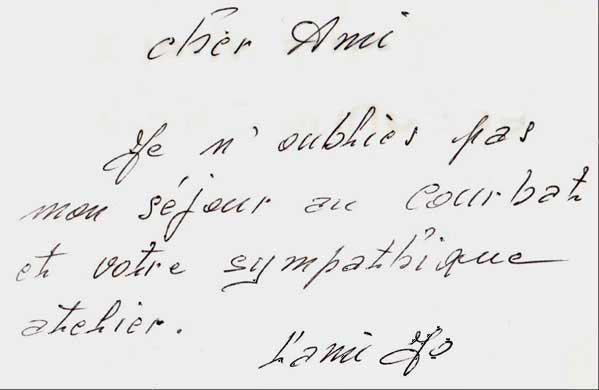 cher Ami
Je n'oublies pas
mon séjour au courbat
et votre sympathique
atelier.
L'ami Jo